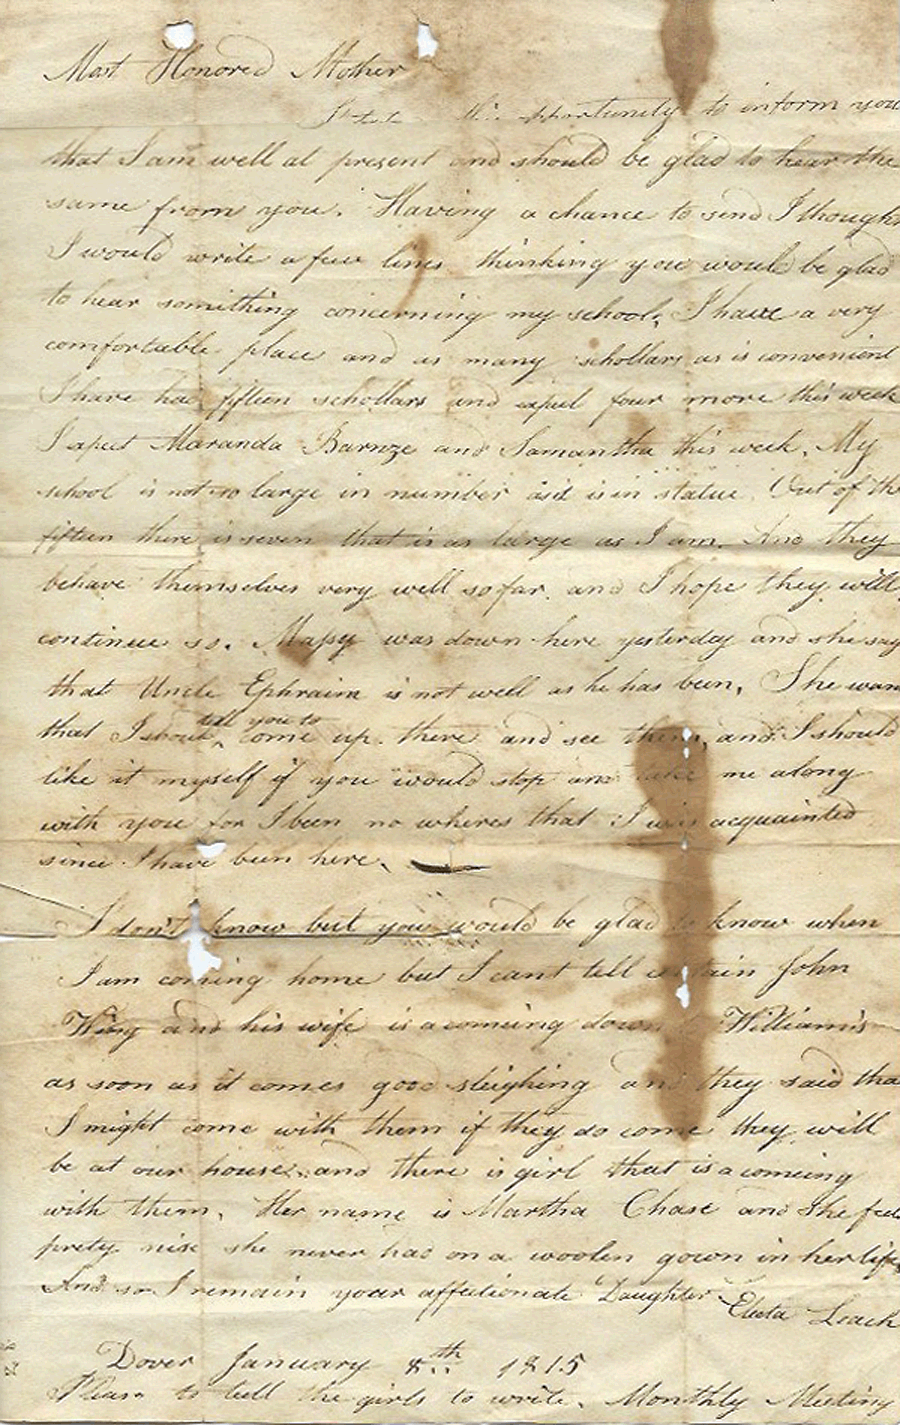 Most Honored Mother
opportunity to inform you
that I am well at present and should be glad to hear the
same from you. Having a chance to send I though
I would write a few lines thinking you would be glad
to hear something concerning my school, I have a very
comfortable place and as many schollars as is convenient
I have had fifteen schollars and expect four more this week
I expect Maranda Barnze and Samantha this week. My
school is not so large in number as it is in statue. Out of the
fifteen there is seven that is as large as I am. And they
behave themselves very well so far and I hope they will
continue so. was down here yesterday and she say
that Uncle Ephraim is not well as he has been, She wan
that I should tell you to come up there and see them, and I should
like it myself if you would stop and take me along
with you for I been no wheres that I was acquainted
since I have been here.
I don't know but you would be glad to know when
I am coming home but I cant tell certain John
Wing and his wife is a comeing down Williams
as soon as it comes good sleighing and they said tha
I might come with them if they do come they will
be at our house and there is girl that is a comeing
with them. Her name is Martha Chase and she feel
prety nise she never had on a woolen gown in her life
And so I remain your affectionate Daughter
Electa Leach
Dover January 8th 1815
Please to tell the girls to write. Monthly Meeting